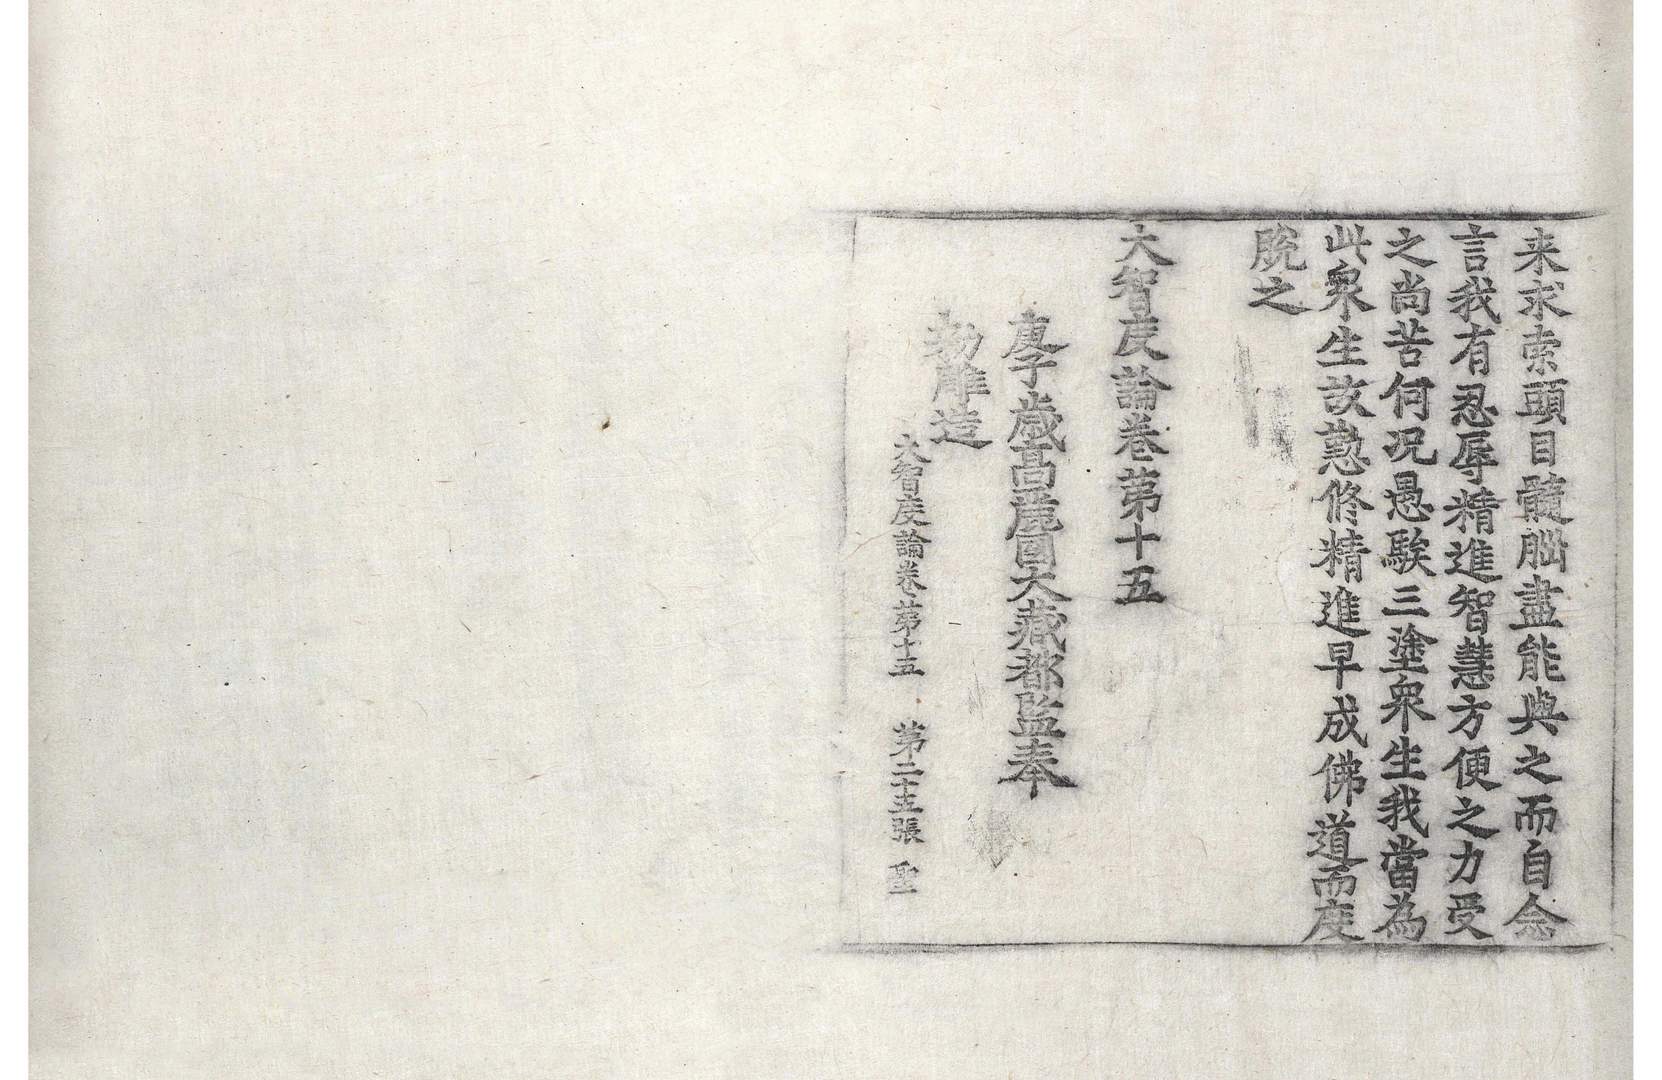 来求索頭目髓腦盡能與之而自念
言我有忍辱精進智慧方便之力受
之尚苦何况愚騃三塗衆生我當為
此衆生故懃修精進早成佛道而度
脫之
大智度論卷第十五
庚子歲高麗國大藏都監奉
勅雕造
大智度論卷第十五 第二十五張 聖